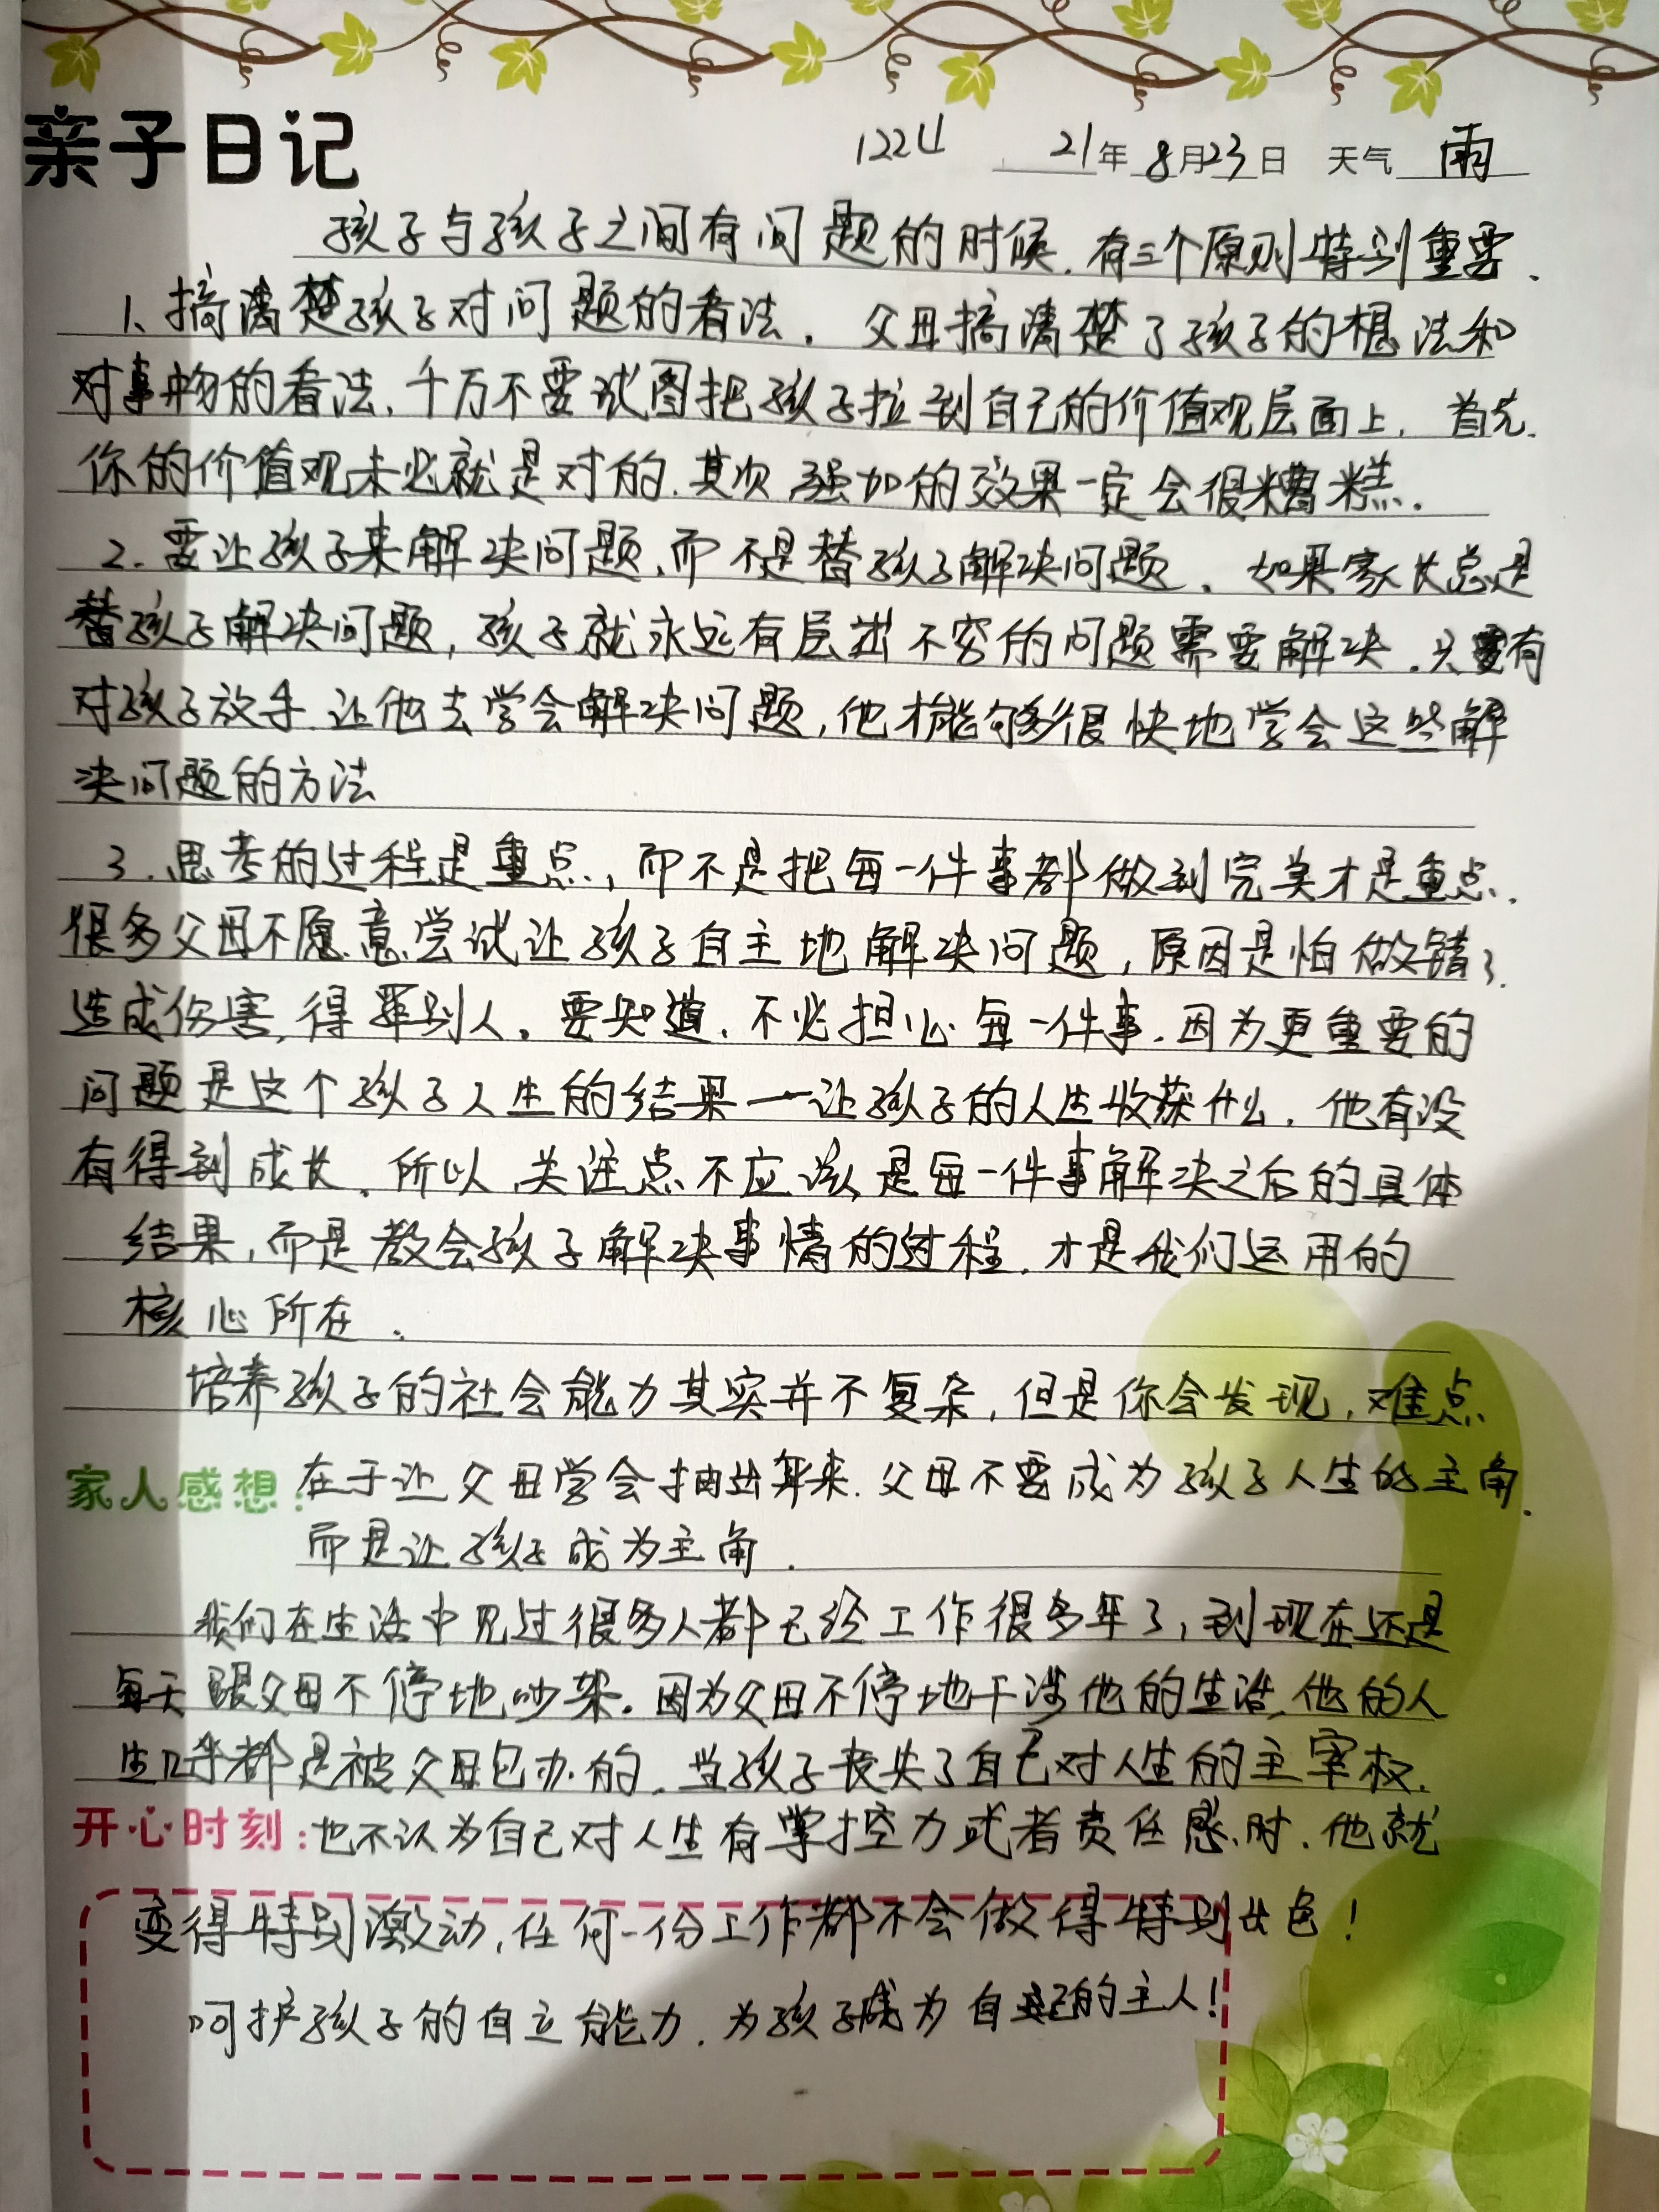 亲子日记 1224 21年8月23日 天气 雨
孩子与孩子之间有问题的时候,有三个原则特别重要.
1、搞清楚孩子对问题的看法. 父母搞清楚了孩子的想法和
对事物的看法,千万不要试图把孩子拉到自己的价值观层面上, 首先.
你的价值观未必就是对的.其次 强加的效果一定会很糟糕.
2.要让孩子来解决问题,而不是替孩子解决问题. 如果家长总是
替孩子解决问题,孩子就永远有层出不穷的问题需要解决.只要有
对孩子放手 让他去学会解决问题,他才能够很快地学会这些解
决问题的方法
3.思考的过程是重点,而不是把每一件事都做到完美才是重点.
很多父母不愿意尝试让孩子自主地解决问题,原因是怕做错了.
造成伤害,得罪别人。要知道,不必担心每一件事.因为更重要的
问题是这个孩子人生的结果一让孩子的人生收获什么,他有没
有得到成长. 所以,关注点不应该是每一件事解决之后的具体
结果,而是教会孩子解决事情的过程,才是我们运用的
核心所在.
培养孩子的社会能力其实并不复杂,但是你会发现,难点
家人感想:在于让父母学会抽出身来.父母不要成为孩子人生的主角.
而是让孩子成为主角.
我们在生活中见过很多人都已经工作很多年了,到现在还是
每天跟父母不停地吵架。因为父母不停地干涉他的生活,他的人
生几乎都是被父母包办的.当孩子丧失了自己对人生的主宰权.
开心时刻:也不认为自己对人生有掌控力或者责任感时.他就
变得特别激动,任何一份工作都不会做得特别出色!
呵护孩子的自立能力.为孩子成为自己的主人!